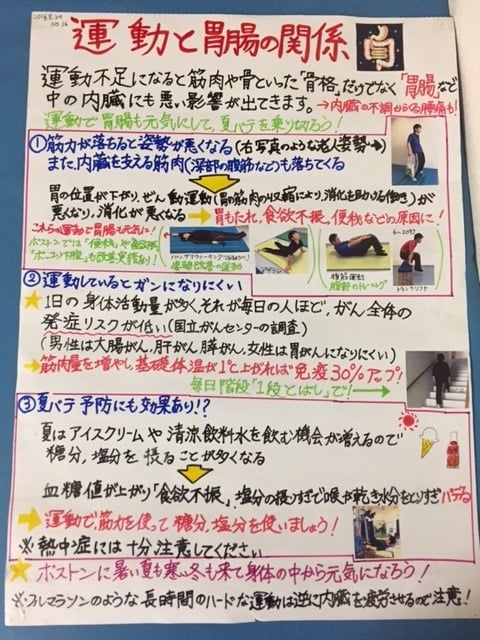 NO.26
運動と胃腸の関係
運動不足になると筋肉や骨といった「骨格」だけでなく「胃腸」など
中の内臓にも悪い影響が出てきます。→内臓の不調からくる腰痛も!
運動で胃腸も元気にして、夏バテを乗り切ろう!
①筋力が落ちると姿勢が悪くなる(右写真のような老人姿勢→)
また、内臓を支える筋肉(深部の腹筋など)も落ちてくる
胃の位置が下がり、ぜん動運動(胃の筋肉の収縮により、消化を助ける働き)が
悪くなり、消化が悪くなる→胃もたれ、食欲不振、便秘などの原因に!
これらの運動で胃腸も元気に!
ボストンでは「便秘」や食欲不振
「ポッコリ下腹」も改善実績あり!
姿勢改善の運動
腹筋運動
腹部のトレーニング
トランクリフト
②運動しているとガンになりにくい
★1日の身体活動量が多く、それが毎日の人ほど、がん全体の
発症リスクが低い(国立がんセンターの調査)
(男性は大腸がん、肝がん、膵がん、女性は胃がんになりにくい)
→筋肉量を増やし、基礎体温が1℃上がれば"免疫30%アップ!
毎日階段「1段とばし」で!→
③夏バテ予防にも効果あり!?
夏はアイスクリームや清涼飲料水を飲む機会が増えるので
糖分、塩分を摂ることが多くなる
血糖値が上がり「食欲不振」、塩分の摂りすぎで喉が乾き水分をとりすぎバテる
→運動で筋力を使って糖分、塩分を使いましょう!
※熱中症には十分注意してください
★ボストンに暑い夏も寒い冬も来て身体の中から元気になろう!
※フルマラソンのような長時間のハードな運動は逆に内臓を疲労させるので注意!